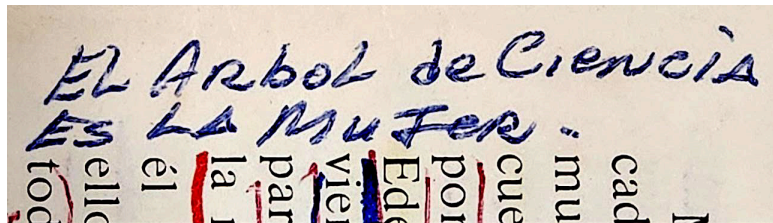 EL ARbOL de CIENCIA
ES LA MUJER.
cad
mu
cue
por
Ede
vier
par
la
él
ello
tod